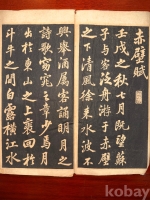 赤壁賦
壬戌之秋七月既望蘇
子与客泛舟游于赤壁
之下清風徐來水波不
興舉酒屬客誦明月之
詩歌窈窕之章少焉月
出於東山之上裴回於
斗牛之間白露橫江水
kobay